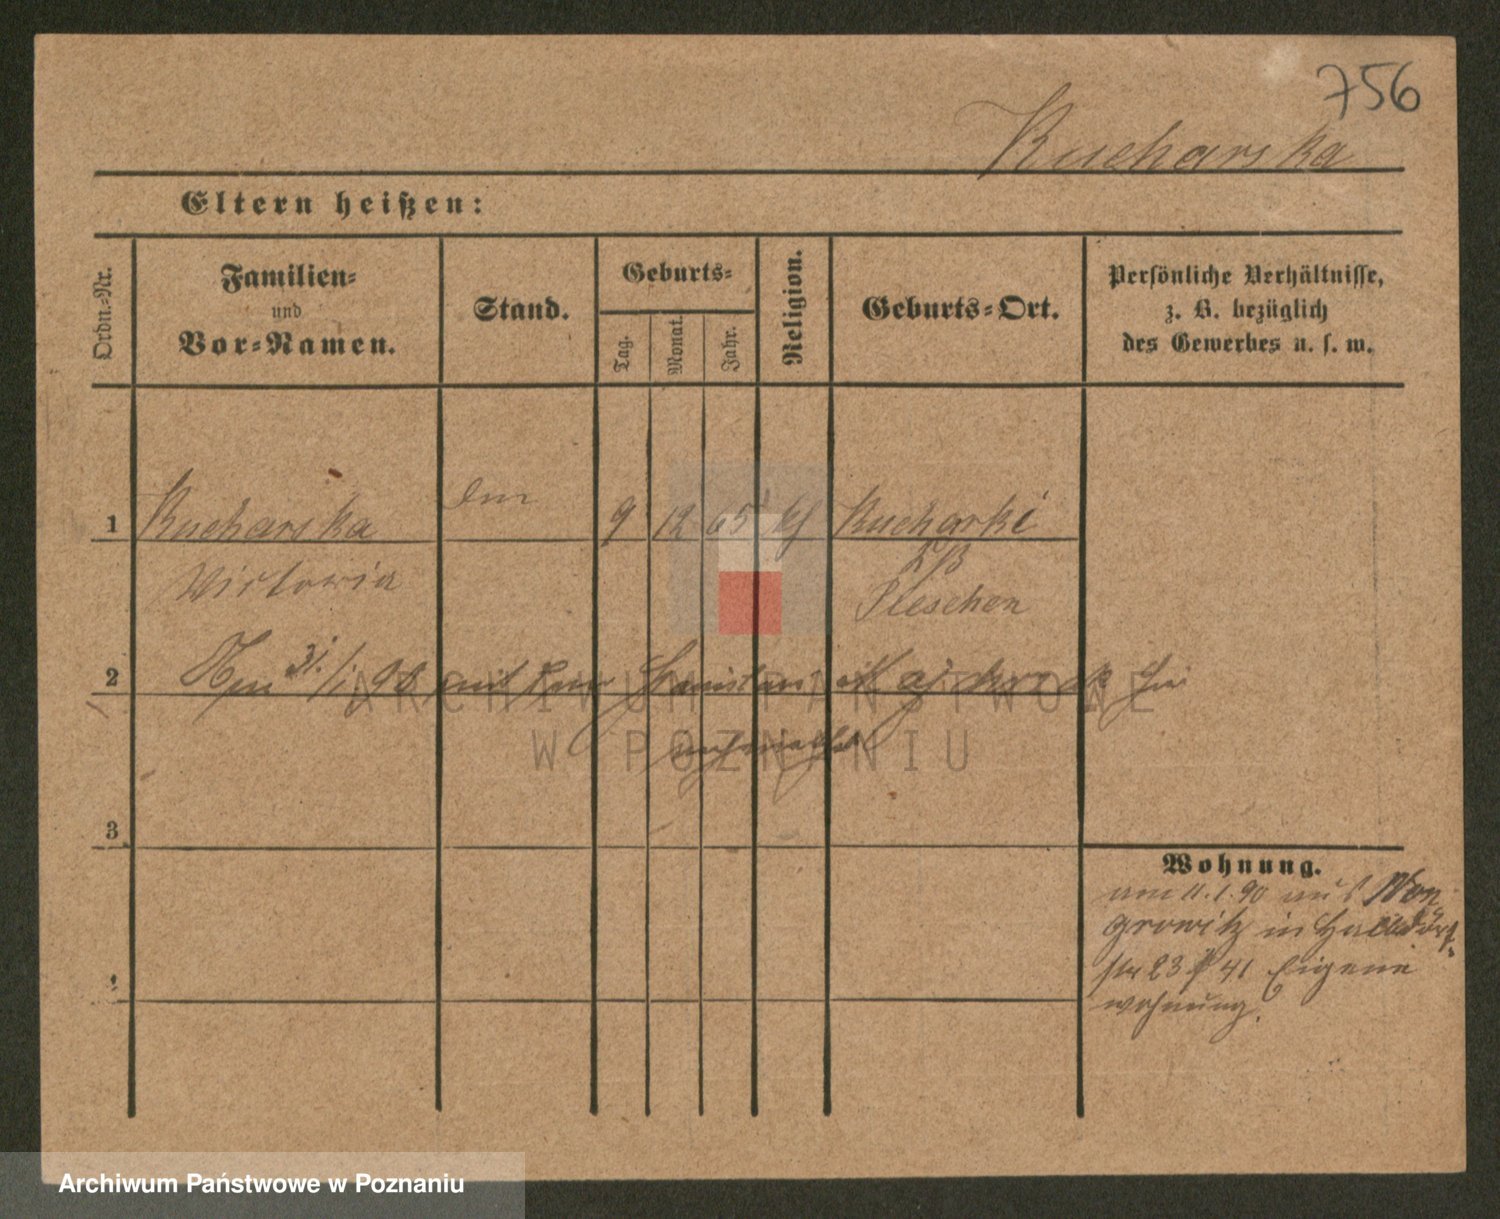 756
Kucharska
Eltern heißen:
Ordn.-Nr.
Familien-
und
Vor-Namen.
Stand.
Geburts-
Tag.
Monat.
Jahr.
Religion.
Geburts-Ort.
Persönliche Verhältnisse,
z. B. bezüglich
des Gewerbes u. s. w.
1 Kucharska 9 12 65 Kucharki
Victoria
Pleschen
2 31/1 90 mit dem Majchrzak
3
Wohnung.
am 11.1.90 aus Won
growitz in Halbdorf
str 23 41 Eigene
wohnung.
ARCHIWUM PAŃSTWOWE
W POZNANIU
Archiwum Państwowe w Poznaniu